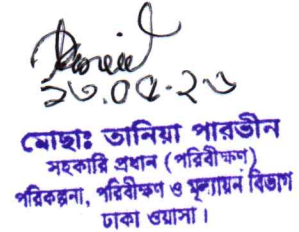 ২৩.০৭.২৩
মোছাঃ তানিয়া পারভীন
সহকারি প্রধান (পরিবীক্ষণ)
পরিকল্পনা, পরিবীক্ষণ ও মূল্যায়ন বিভাগ
ঢাকা ওয়াসা।